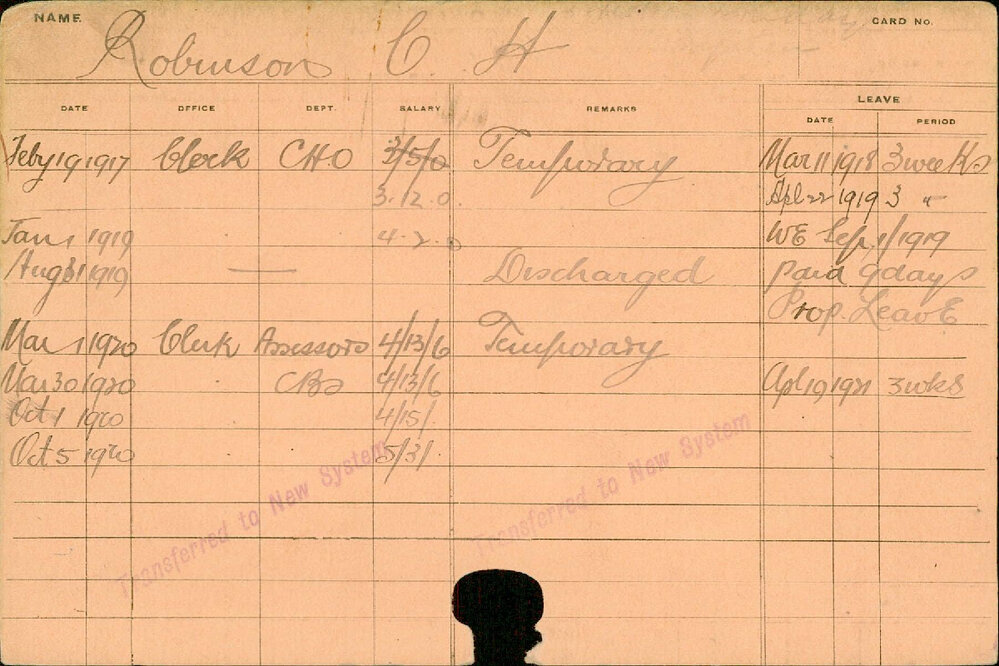 NAME
CARD NO.
Robinson C. H
DATE OFFICE DEPT. SALARY REMARKS LEAVE
DATE PERIOD
Feby 19 1917 Clerk CHO 3/5/0 Temporary Mar 11 1918 3 weeks
3. 12. 0. Apl 22 1919 3 "
Jan 1 1919 4. 2. 0 WE Sep, 1/1919
Aug 31 1919 — Discharged paid 9 days
Prop. Leave
Mar 1 1920 Clerk Assessors 4/13/6 Temporary
Mar 30 1920 4/13/6 Apl 19 1921 3 wks
Oct 1 1920 4/15/.
Oct 5 1920 5/3/.
Transferred to New System
Transferred to New System